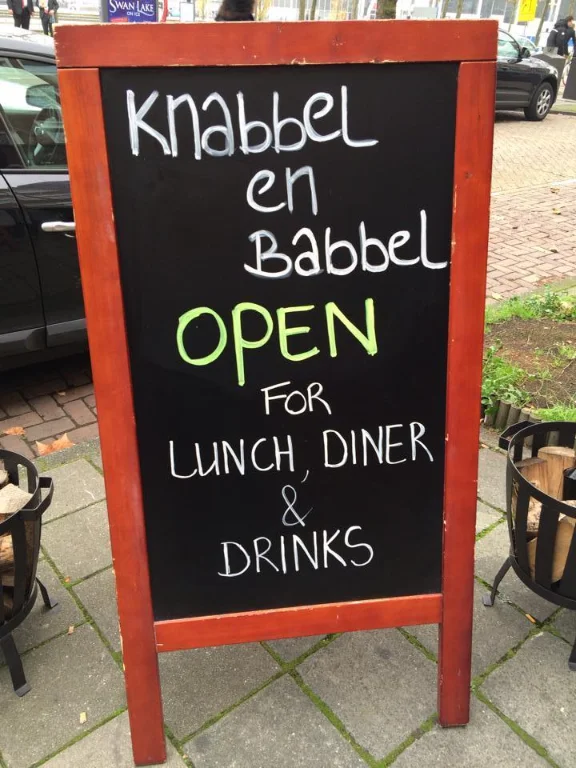 SWAN LAKE
ON ICE
Knabbel
en
Babbel
OPEN
FOR
LUNCH, DINER
&
DRINKS